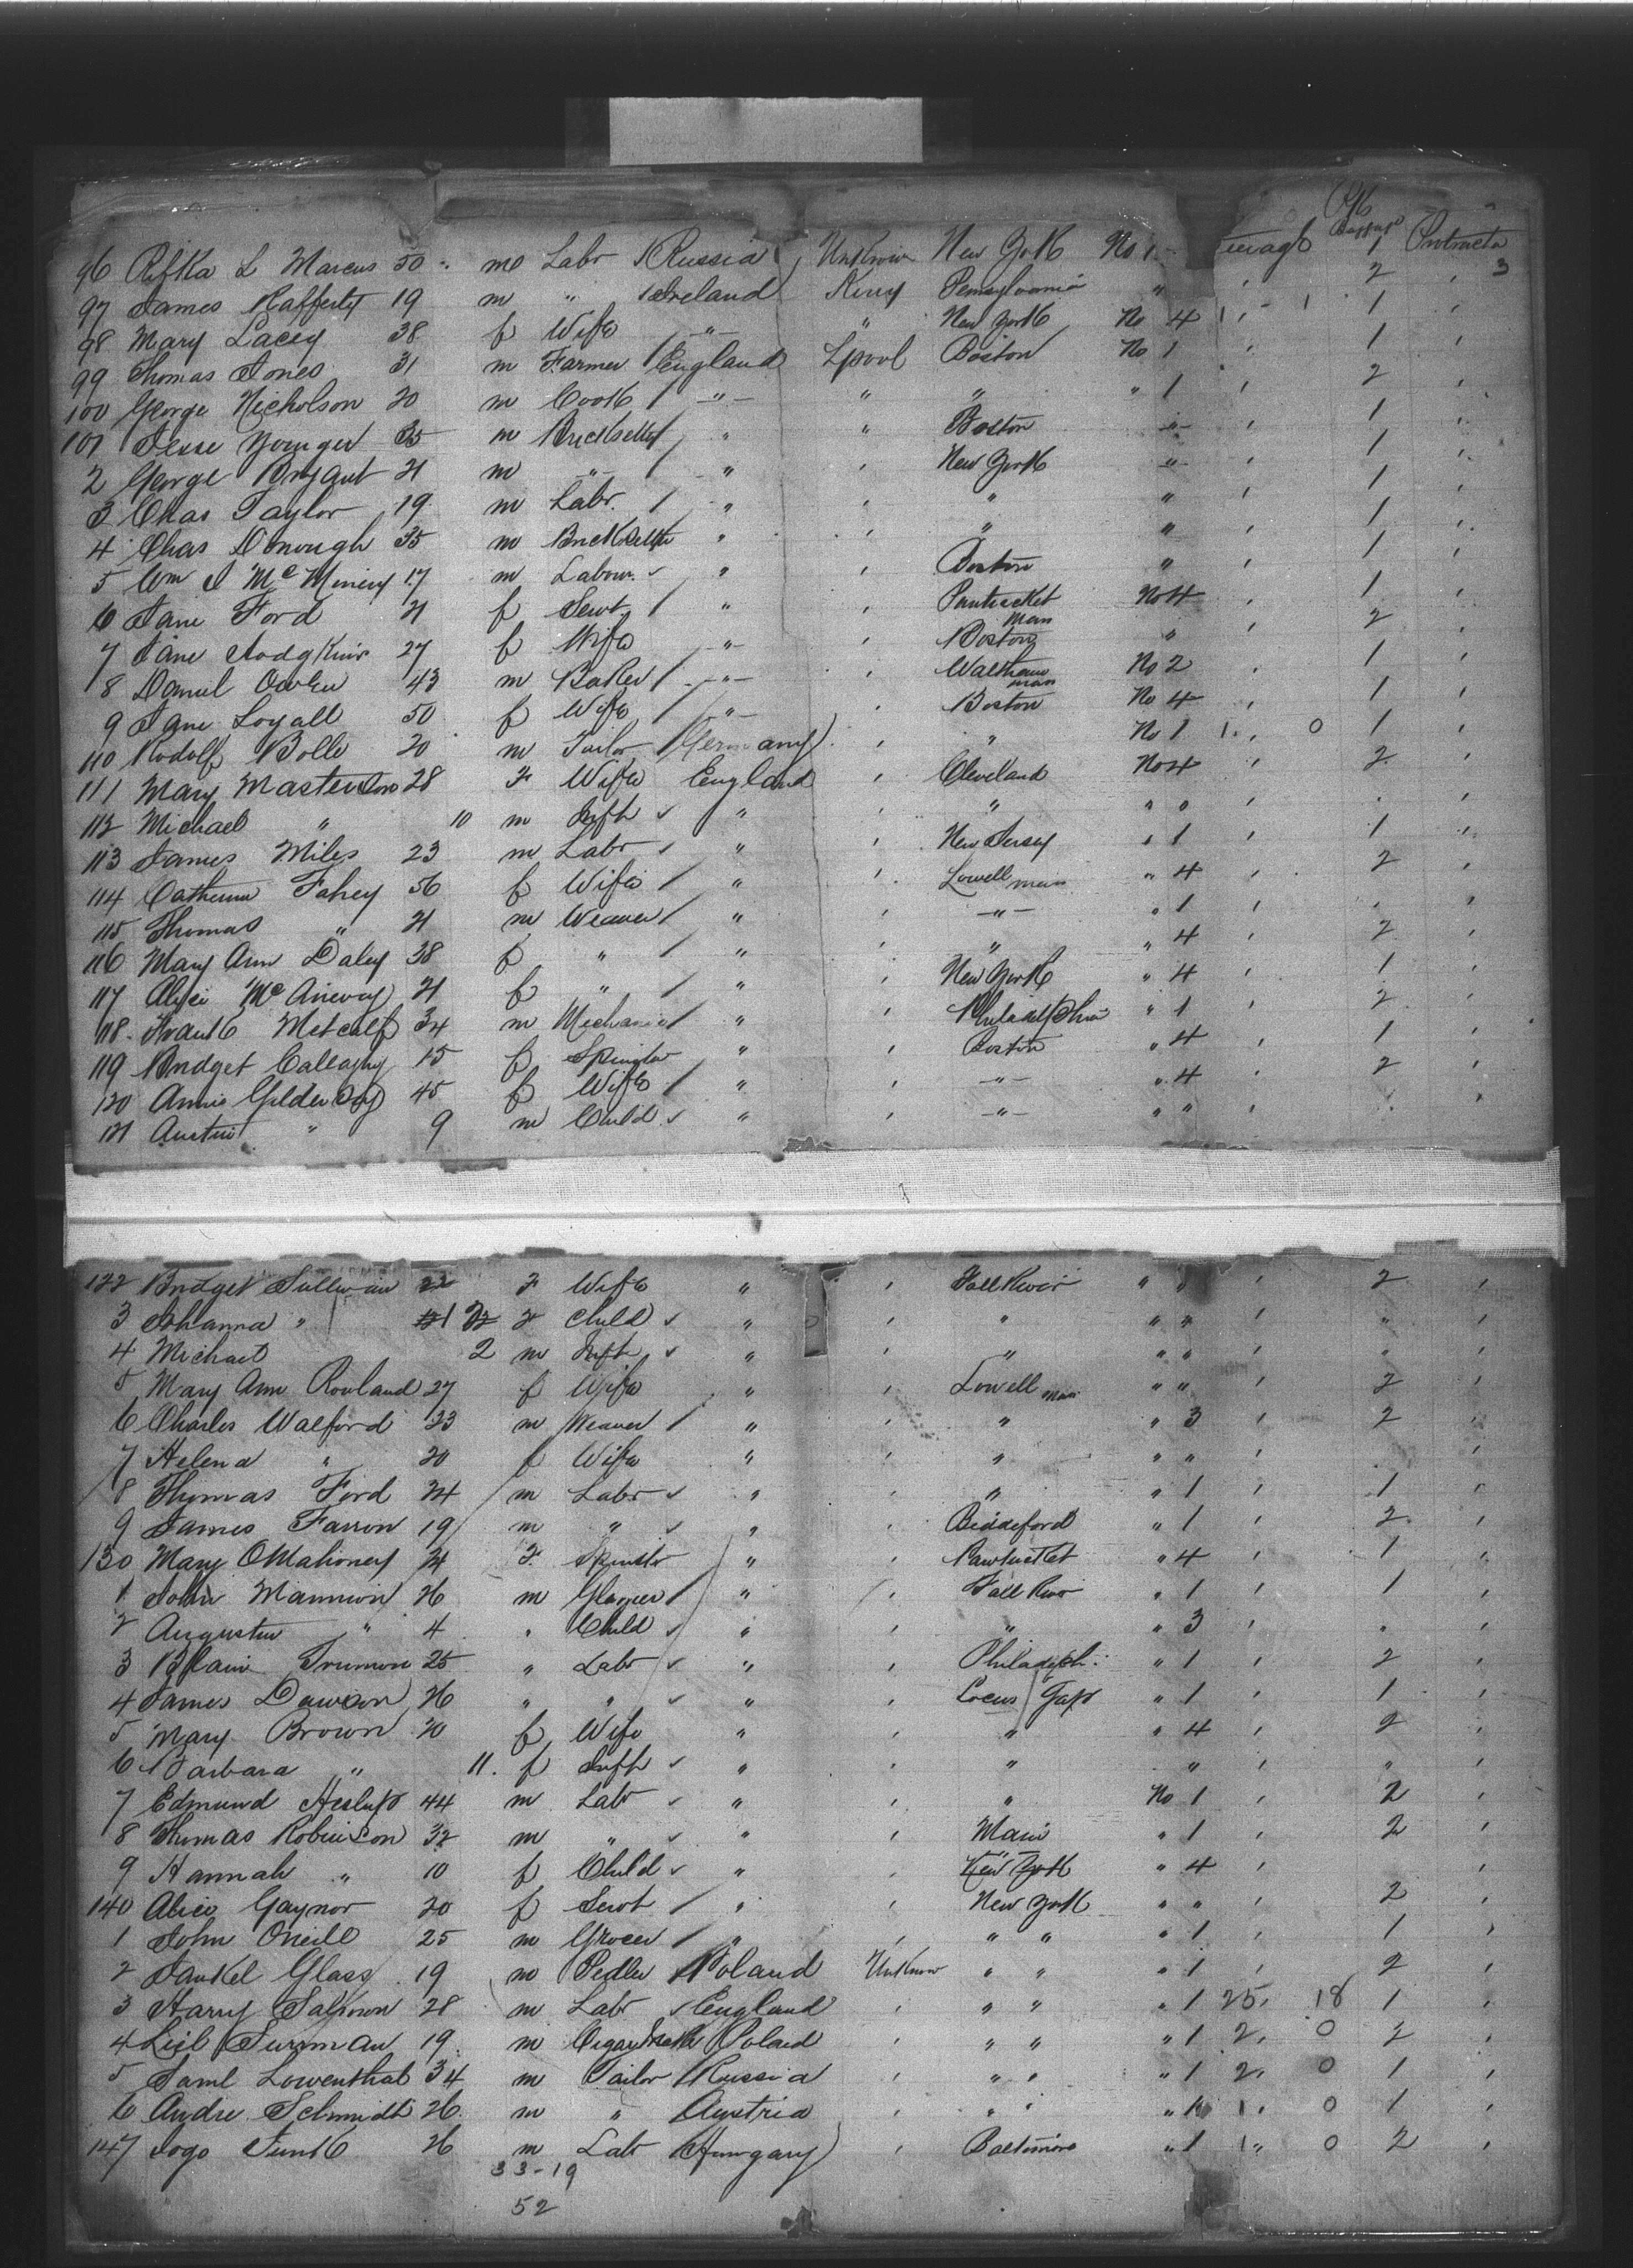 Passage
96 Rifka L Marcus 50 m Labr Russia Unknown New York No 1 1 Contracta
97 James Rafferty 19 m " Ireland Kerry Pennsylvania " 2 3
98 Mary Lacey 38 f Wife " " New York No 4 1
99 Thomas Jones 31 m Farmer England Lpool Boston No 1 1
100 George Nicholson 20 m Cook " " " " 1 2
101 Jesse Younger 35 m " " Boston " 1
2 George 21 m " " New York " 1
3 Chas Taylor 19 m Labr. " " " 1
4 Chas Donough 35 m " " " 1
5 Wm J 17 m Labour. " Boston " 1
6 Jane Ford 21 f Servt " No 4 1
Mass
7 Jane Hodgkins 27 f Wife " Boston " 2
8 Daniel Owen 43 m Baker " Waltham No 2 1
mass
9 Jane Loyall 50 f Wife " Boston No 4 1
110 Rodolf Bolle 20 m Tailor Germany " No 1 1 0 1
111 Mary Masterton 28 F Wife England Cleveland No 4 2
112 Michael " 10 m Infh " " " "
113 James Miles 23 m Labr " New Jersey " 1 1
114 Catherine Fahey 56 f Wife " Lowell mass " 4 2
115 Thomas " 21 m Weaver " " " 1
116 Mary Ann Daley 38 f " " " " 4 2
117 Alice 21 f " " New York " 4 1
118 Frank Metcalf 34 m Mechanic " Philadelphia " 1 2
119 Bridget Callaghy 15 f Spinster " Boston " 4 1
120 Annie 45 f Wife " " " 4 2
121 Austin " 9 m Child " " " "
122 Bridget Sullivan 22 F Wife " Fall River " " 2
3 Johanna " F Child " " " " "
4 Michael 2 m Infh " " " " "
5 Mary Ann Rowland 27 f Wife " Lowell mass " " 2
6 Charles Walford 23 m Weaver " " " 3 2
7 Helena " 20 f Wife " " " "
8 Thomas Ford 24 m Labr " " " 1 1
9 James Farron 19 m " " Biddeford " 1 2
130 Mary OMahoney 24 F Spinstr " Pawtucket " 4 1
1 John Mannion 26 m " Fall River " 1 1
2 " 4 " Child " " " 3 "
3 25 " Labr " Philadelph. " 1 2
4 James Dawson 26 " " " Locus Gap " 1 1
5 Mary Brown 20 f Wife " " " 4 2
6 Barbara " 11. f Infh " " " "
7 Edmund Heslup 44 m Labr " " No 1 2
8 Thomas Robinson 32 m " " " 1 2
9 Hannah " 10 f Child " New York " 4
140 Alice Gaynor 20 f Servt " New York " " 2
1 John Oneill 25 m Grocer " " " " 1 1
2 Glass 19 m Pedler Poland Unknown " " " 1 2
3 Harry 28 m Labr England " " " 1 25 18 1
4 19 m Poland " " " 1 2 0 2
5 Saml Lowenthal 34 m Tailor Russia " " " 1 2 0 1
6 Andre Schmidt 26 m " Austria " " " 1 1 0 1
147 26 m Labr Hungary Baltimore " 1 1 0 2
33-19
52